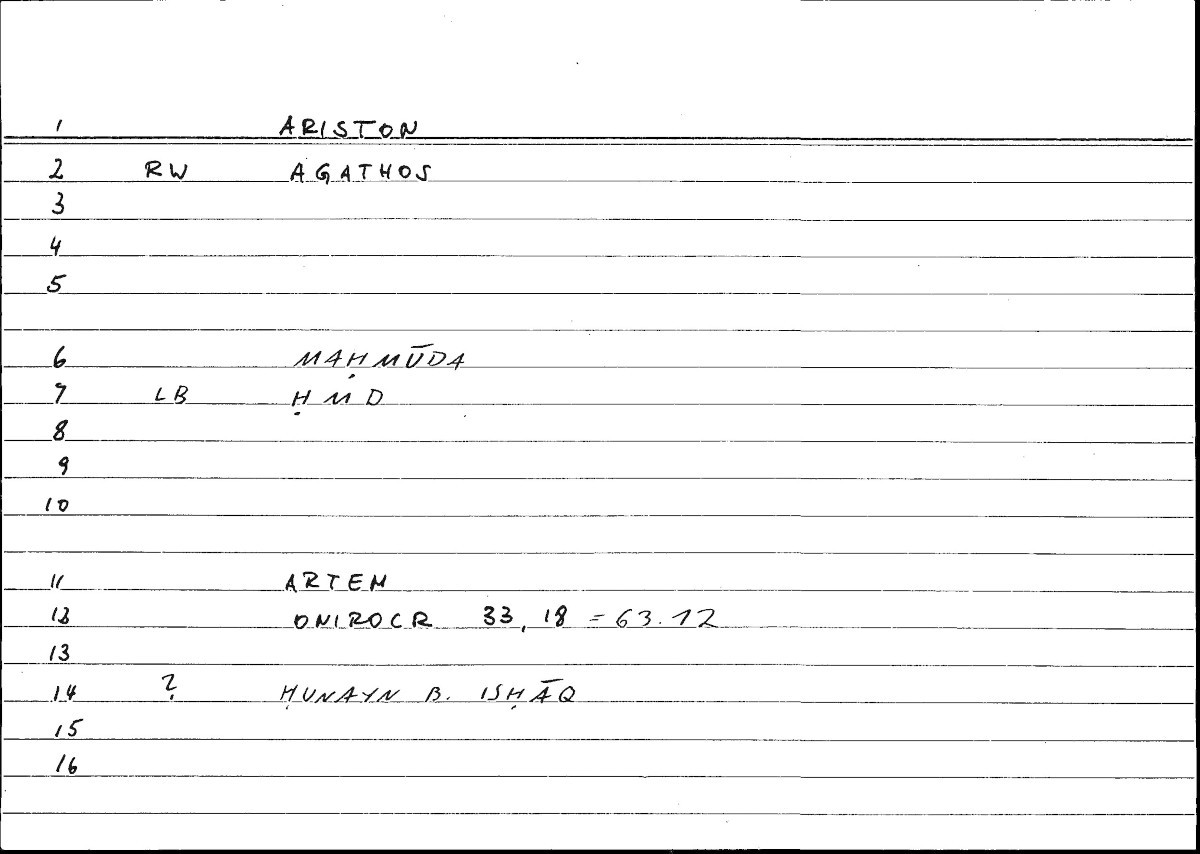 1 ARISTON
2 RW AGATHOS
3
4
5
6 MAḤMŪDA
7 LB ḤMD
8
9
10
11 ARTEM
12 ONIROCR 33, 18 = 63.12
13
14 ? ḤUNAYN B. ISḤĀQ
15
16